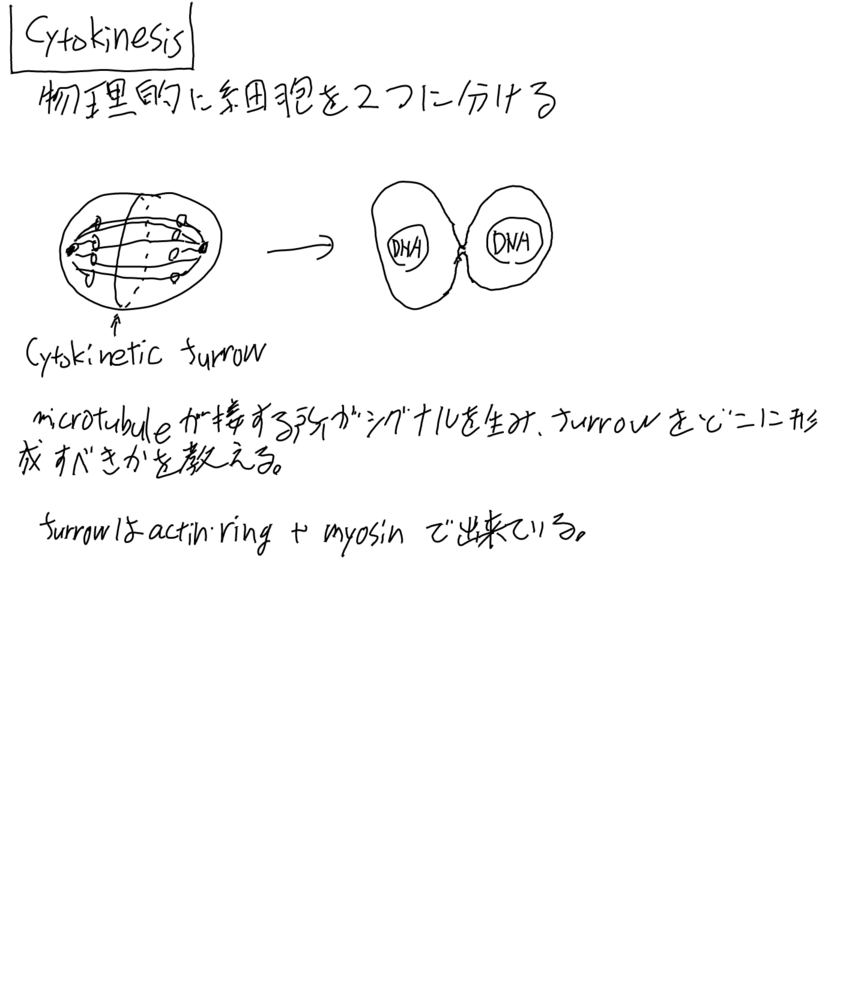 Cytokinesis
物理的に細胞を2つに分ける
DNA DNA
Cytokinetic furrow
microtubuleが接する所がシグナルを生み、furrowをどこに形
成すべきかを教える。
furrowはactin・ring + myosin で出来ている。